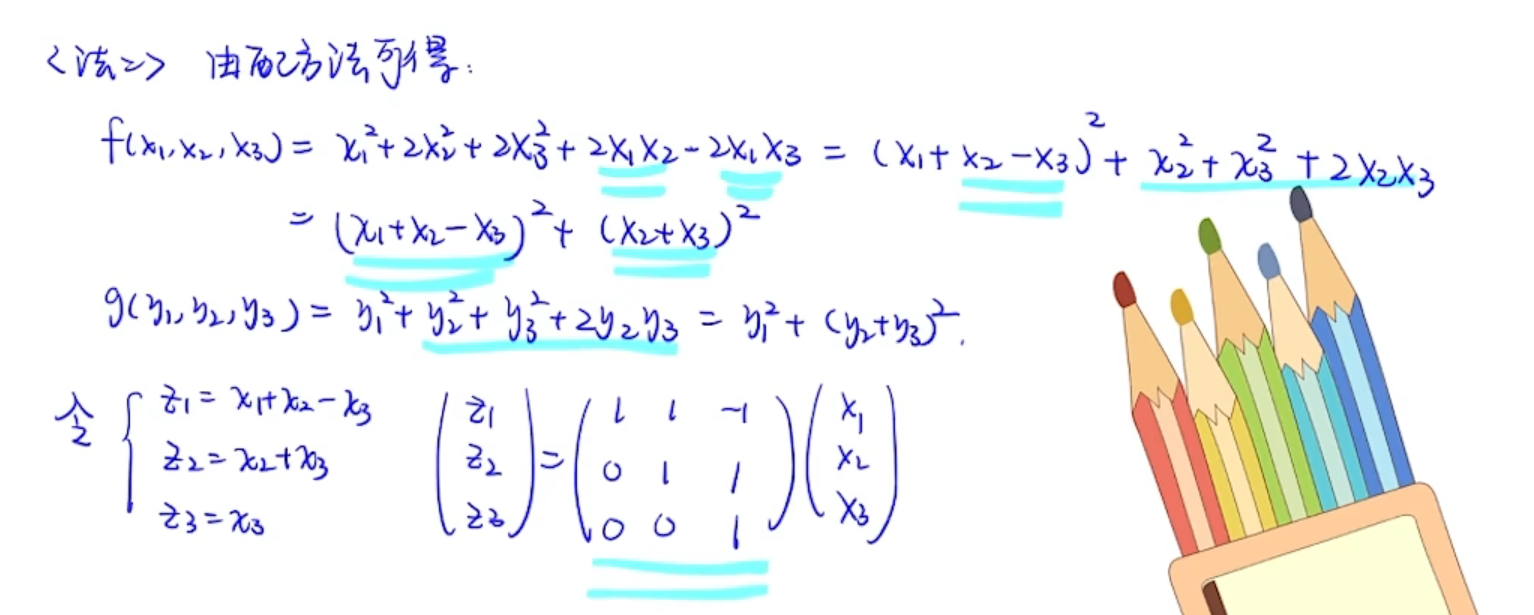 <法二> 由配方法可得:
f(x₁,x₂,x₃) = x₁²+2x₂²+2x₃²+2x₁x₂-2x₁x₃ = (x₁+x₂-x₃)²+x₂²+x₃²+2x₂x₃
= (x₁+x₂-x₃)²+(x₂+x₃)²
g(y₁,y₂,y₃) = y₁²+y₂²+y₃²+2y₂y₃ = y₁²+(y₂+y₃)².
令 { z₁=x₁+x₂-x₃ ( z₁ ) = ( 1 1 -1 ) ( x₁ )
z₂=x₂+x₃ ( z₂ ) ( 0 1 1 ) ( x₂ )
z₃=x₃ ( z₃ ) ( 0 0 1 ) ( x₃ )